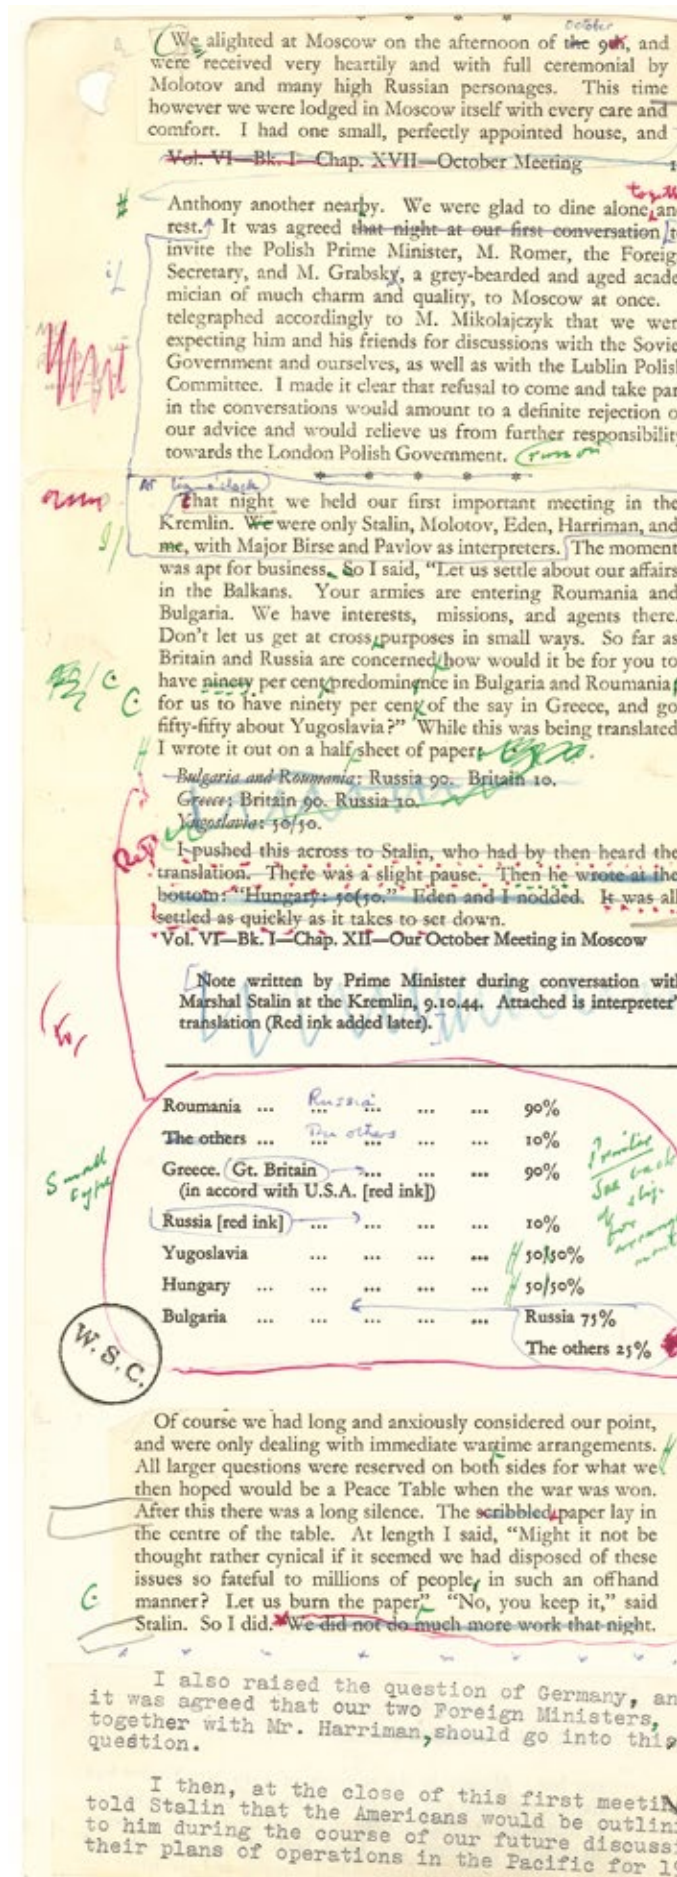 October
(We alighted at Moscow on the afternoon of the 9th, and
were received very heartily and with full ceremonial by
Molotov and many high Russian personages. This time
however we were lodged in Moscow itself with every care and
comfort. I had one small, perfectly appointed house, and
Vol. VI—Bk. I—Chap. XVII—October Meeting
together
Anthony another nearby. We were glad to dine alone, and
rest. It was agreed that night at our first conversation [to
invite the Polish Prime Minister, M. Romer, the Foreig
Secretary, and M. Grabsky, a grey-bearded and aged acade
mician of much charm and quality, to Moscow at once.
telegraphed accordingly to M. Mikolajczyk that we wer
expecting him and his friends for discussions with the Sovie
Government and ourselves, as well as with the Lublin Polis
Committee. I made it clear that refusal to come and take par
in the conversations would amount to a definite rejection o
our advice and would relieve us from further responsibilit
towards the London Polish Government. (run on
* * * * *
At ten o'clock
That night we held our first important meeting in the
Kremlin. We were only Stalin, Molotov, Eden, Harriman, and
me, with Major Birse and Pavlov as interpreters. The moment
was apt for business. So I said, "Let us settle about our affairs
in the Balkans. Your armies are entering Roumania and
Bulgaria. We have interests, missions, and agents there.
Don't let us get at cross purposes in small ways. So far as
Britain and Russia are concerned how would it be for you to
have ninety per cent predominence in Bulgaria and Roumania
for us to have ninety per cent of the say in Greece, and go
fifty-fifty about Yugoslavia?" While this was being translated
I wrote it out on a half sheet of paper:
Bulgaria and Roumania: Russia 90. Britain 10.
Greece: Britain 90. Russia 10.
Yugoslavia: 50/50.
I pushed this across to Stalin, who had by then heard the
translation. There was a slight pause. Then he wrote at the
bottom: "Hungary: 50(50." Eden and I nodded. It was all
settled as quickly as it takes to set down.
Vol. VI—Bk. I—Chap. XII—Our October Meeting in Moscow
[Note written by Prime Minister during conversation with
Marshal Stalin at the Kremlin, 9.10.44. Attached is interpreter'
translation (Red ink added later).]
Roumania ... Russia ... ... ... ... 90%
The others ... The others ... ... ... ... 10%
Greece. Gt. Britain ... ... ... 90%
(in accord with U.S.A. [red ink])
Russia [red ink] ... ... ... 10%
Yugoslavia ... ... ... ... 50/50%
Hungary ... ... ... ... ... 50/50%
Bulgaria ... ... ... ... ... Russia 75%
The others 25%
Small
type
Printer
See
slip
for
W.S.C.
Of course we had long and anxiously considered our point,
and were only dealing with immediate wartime arrangements.
All larger questions were reserved on both sides for what we
then hoped would be a Peace Table when the war was won.
After this there was a long silence. The scribbled paper lay in
the centre of the table. At length I said, "Might it not be
thought rather cynical if it seemed we had disposed of these
issues so fateful to millions of people, in such an offhand
manner? Let us burn the paper" "No, you keep it," said
Stalin. So I did. We did not do much more work that night.
I also raised the question of Germany, an
it was agreed that our two Foreign Ministers,
together with Mr. Harriman, should go into this
question.
I then, at the close of this first meetin
told Stalin that the Americans would be outlini
to him during the course of our future discussi
their plans of operations in the Pacific for 19